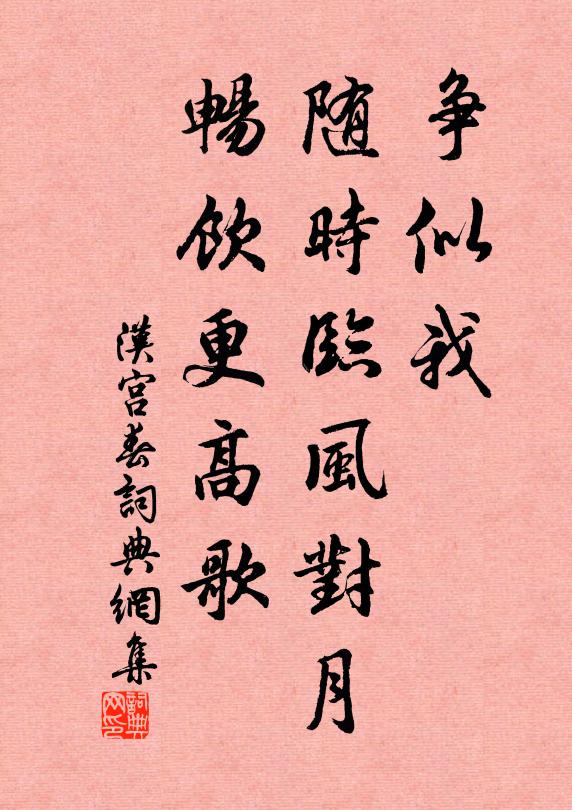 争似我
随時臨風對月
暢飲更高歌
漢宮春詞典網集
詞典网印